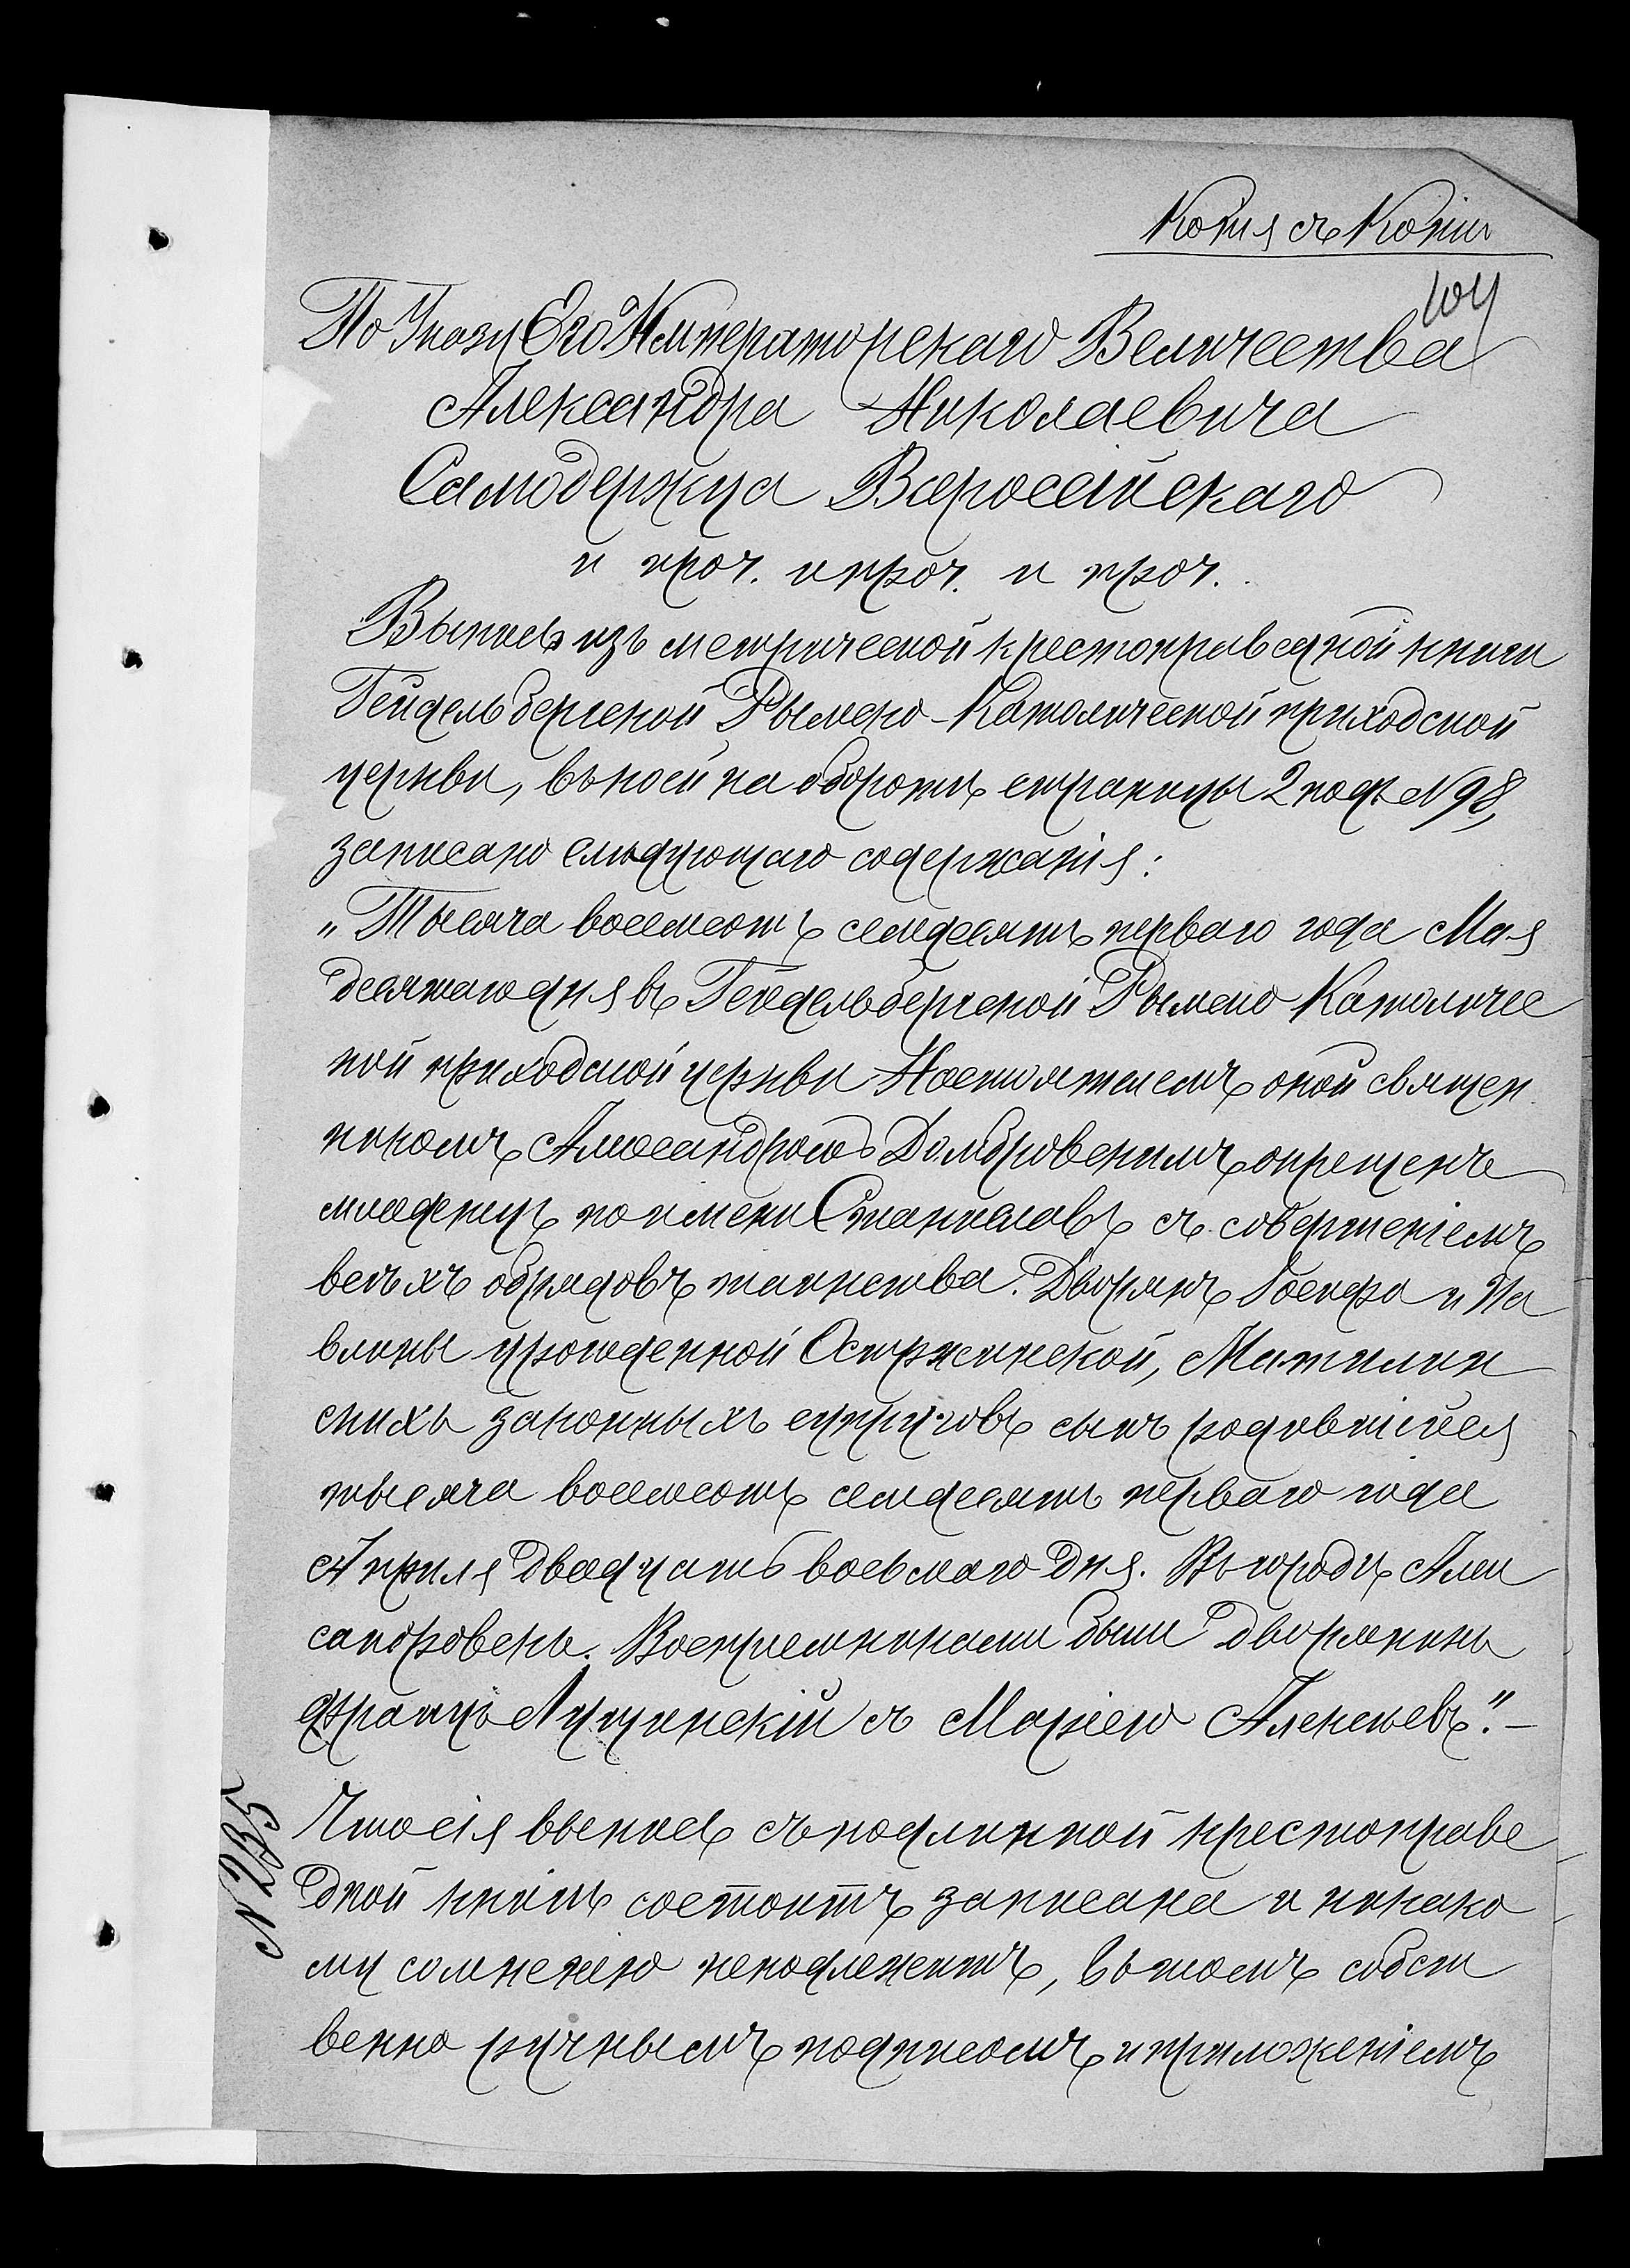 Копія съ Копіи
104
По Указу Его Императорскаго Величества
Александра Николаевича
Самодержца Всеросейскаго
и проч. и проч. и проч.
Выпись изъ метрической крестоправедной книги
Гейдельбергской Рымско-Католической приходской
церкви, въ коей на оборотѣ страницы 2 подъ № 98,
записано слѣдующаго содержанія:
„Тысяча восемсотъ семдесятъ перваго года Мая
десятаго дня въ Гейдельбергской Рымско Каталичес
кой приходской церкви Настоятелемъ оной священ
никомъ Александромъ Домбровскимъ окрещенъ
младенецъ по имени Станиславъ съ совершеніемъ
всѣхъ обрядовъ таинства. Дворянъ Іосифа и Па
влины урожденной Остржинской,
скихъ законныхъ супруговъ сынъ родившійся
тысяча восемсотъ семдесятъ перваго года
Априля двадцать восьмаго дня. Въ городѣ Алек
сандровскѣ. Воспріемниками были дворянинъ
Францъ Лущинскій съ Маріею
Что сія выпись съ подлинной крестоправе
дной книгѣ состоитъ записана и никако
му сомненію неподлежитъ, въ томъ собст
венно ручнымъ подписомъ и приложеніемъ
№ 285